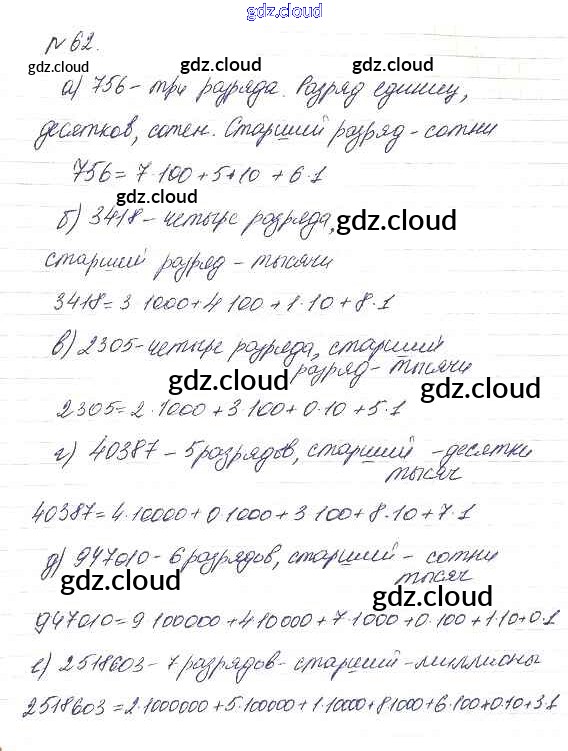 gdz.cloud
№62.
gdz.cloud gdz.cloud gdz.cloud
а) 756 - три разряда. Разряд единиц,
десятков, сотен. Старший разряд - сотни
756 = 7·100 + 5·10 + 6·1
gdz.cloud
б) 3418 - четыре разряда,
gdz.cloud
старший разряд - тысячи
3418 = 3·1000 + 4·100 + 1·10 + 8·1
в) 2305 - четыре разряда, старший
разряд - тысячи
gdz.cloud gdz.cloud
2305 = 2·1000 + 3·100 + 0·10 + 5·1
г) 40387 - 5 разрядов, старший - десятки
тысяч
40387 = 4·10000 + 0·1000 + 3·100 + 8·10 + 7·1
д) 947010 - 6 разрядов, старший - сотни
тысяч
gdz.cloud gdz.cloud
947010 = 9·100000 + 4·10000 + 7·1000 + 0·100 + 1·10 + 0·1
е) 2518603 - 7 разрядов - старший - миллионы
2518603 = 2·1000000 + 5·100000 + 1·10000 + 8·1000 + 6·100 + 0·10 + 3·1